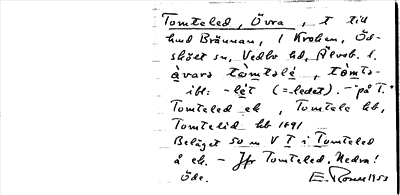 Tomteled, Övra, t till
hmd Brännan, 1 Kroken, Öd-
skölt sn, Vedbo hd, Älvsb. l.
åvara tòmtalé, tòmta-
ibl: -lét (=ledet). - på T."
Tomteled ek, Tomtele hb,
Tomtelid hb 1691
Beläget 50 m V T i Tomteled
å ek. - Jfr Tomteled, Nedra!
Öde.